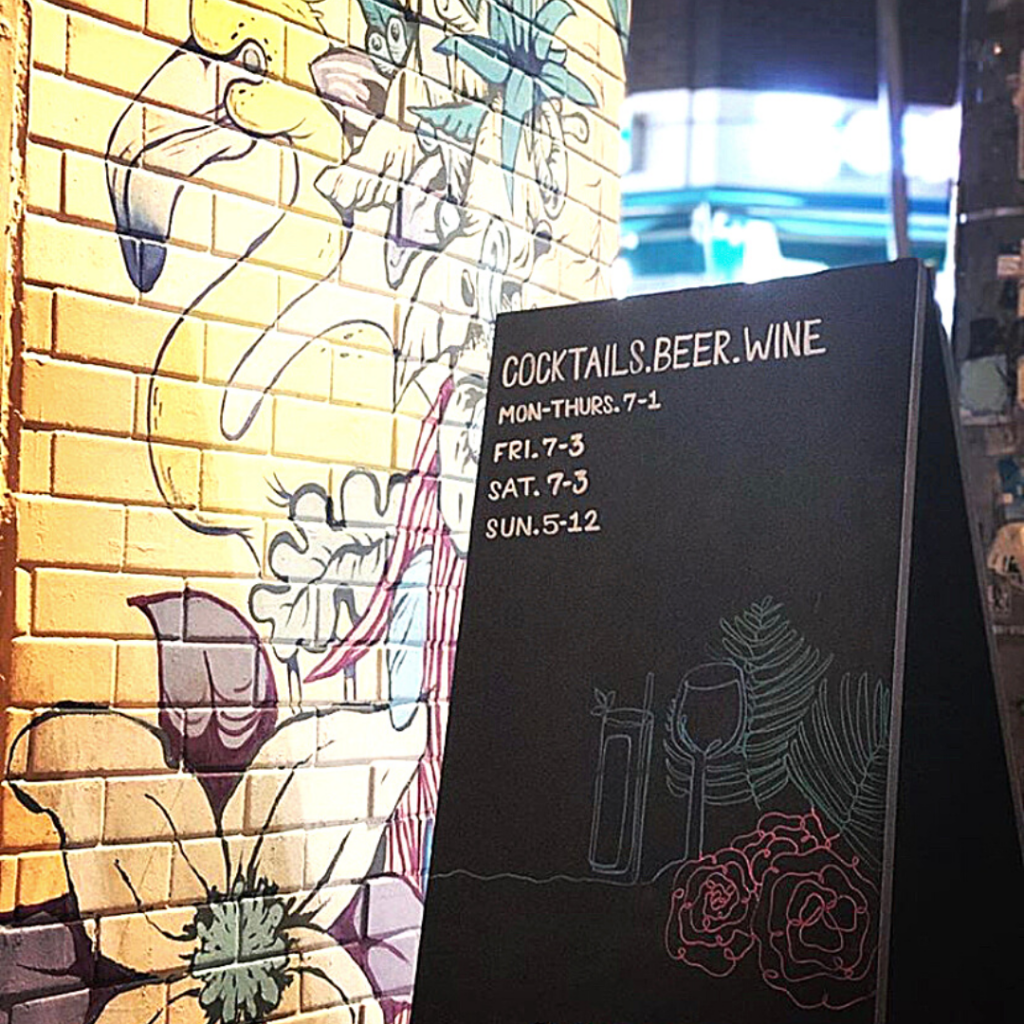 COCKTAILS.BEER.WINE
MON-THURS.7-1
FRI.7-3
SAT.7-3
SUN.5-12